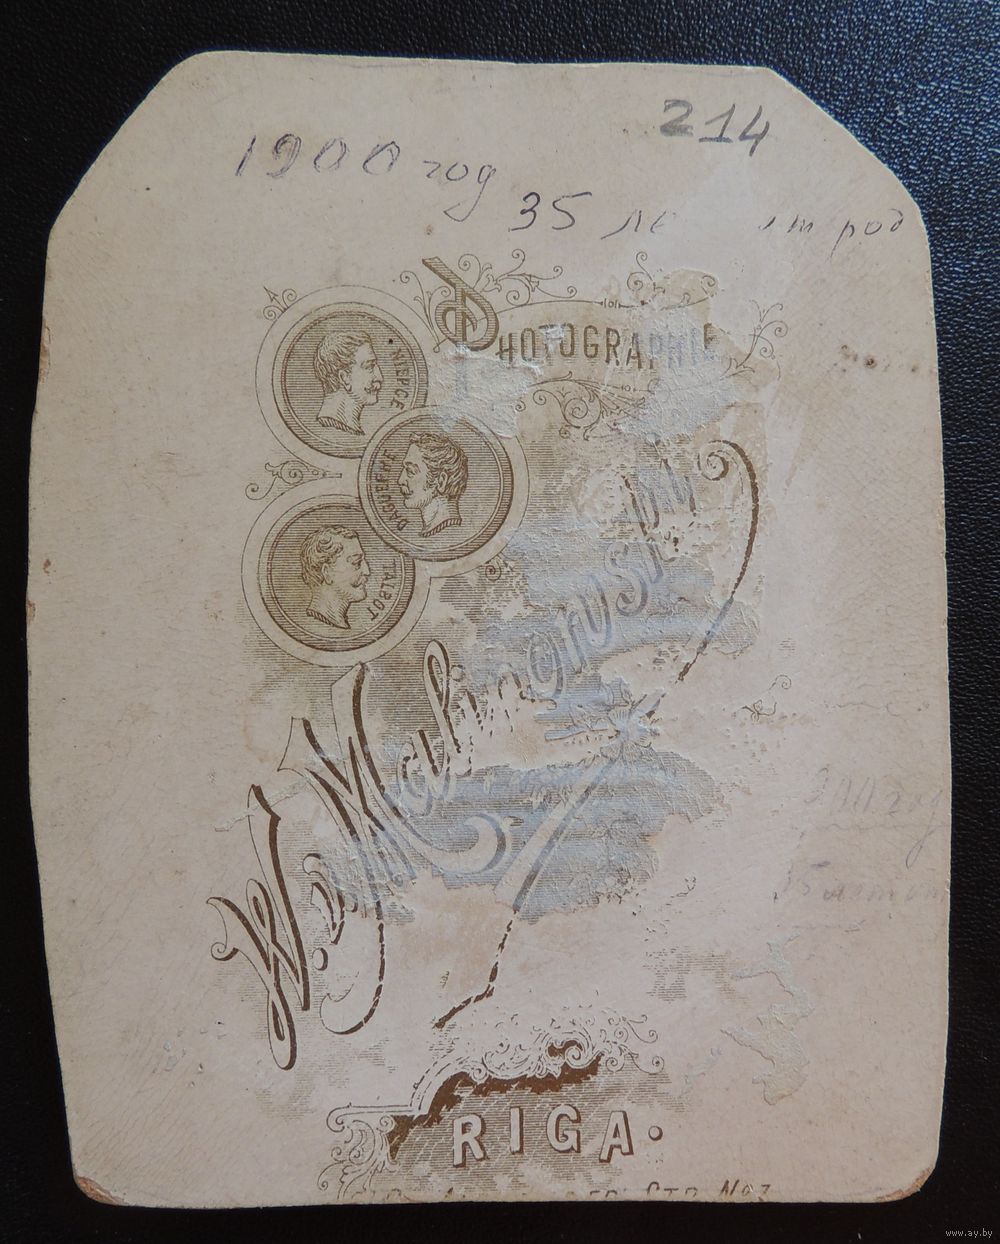 214
1900 год
35
род
PHOTOGRAPHIE
NIEPCE
DAGUERRE
TALBOT
W. Malinowsky
RIGA.
STR. №
900 год
35 лет от
www.ay.by